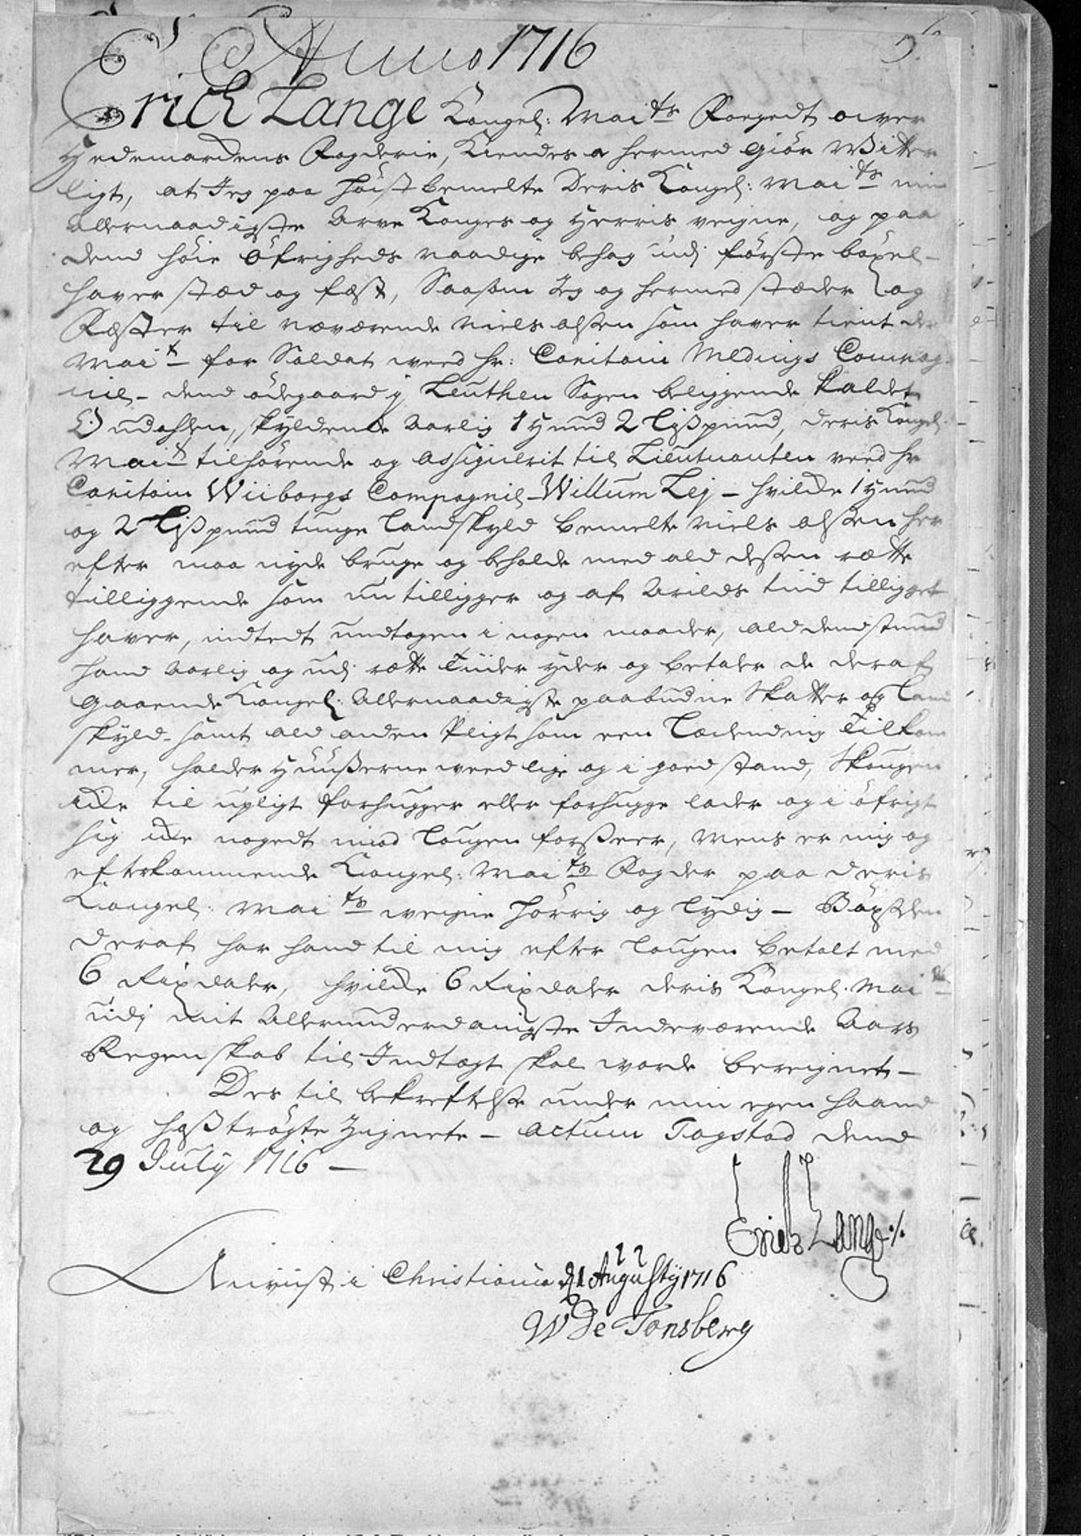 Anno 1716
5.
Erich Lange Kongel: Mai:ts Foegedt over
Hedemarckens Fogderie, Kiendes og hermed giör Witter
ligt, at Jeg paa höist bemelte Deris Kongel: Mai:ts min
Allernaadigste Arve Konges og Herris veigne, og paa
dend höie öfrigheds naadige behag udj förste böxel-
haver stæd og fæst, Saasom Jeg og hermed stæder og
Fæster til nærværende Niels olsen som haver tient des
Mai:t for Soldat weed hr: Capitain Medings Compag-
nie- dend ödegaard j Leuthen Sogen beliggende kaldet
skyldende Aarlig 1 Hund 2 Lispund, deris Kongel:
Mai:t tilhörende og assignerit til Lieutnanten veed hr
Capitain Wiiborgs Compagnie- Willum Lej - hvilcke 1 Hund
og 2 Lispund tunge Landskyld bemelte Niels olsen her
efter maa nyde bruge og beholde med ald dessen rætte
tilliggende som nu tilligger og af Arilds tiid tilligget
haver, indtedt undtagen i nogen maader, ald dend stund
hand Aarlig og udj rætte tiider yder og betaler de deraf
gaaende Kongel: Allernaadigste paabudne Skatter og Land
skyld- samt ald anden Pligt som een Leilending Tilkom
mer, holder Huusserne weed lige og i goed stand, Skougen
icke til upligt forhugger eller forhugge lader og i öfrigt
sig icke nogedt mod Lougen forseer, mens er mig og
efterkommende Kongel: Mai:ts Fogder paa deris
Kongel: Mai:ts weigne hörrig og lydig - Böxelen
deraf har hand til mig efter Lougen betalt med
6 Rixdaler, hvilcke 6 Rixdaler deris Kongel: Mai:t
udj mit Allerunderdanigste Indeværende Aars
Regenskab til Indtægt skal worde bereignet -
Des til bekreftelse under min egen haand
og hoströgte Zignete - actum Togstad dend
29 July 1716 -
Erich Lange ./.
Anviist i Christiania d 22 Augusty 1716
W De Tonsberg